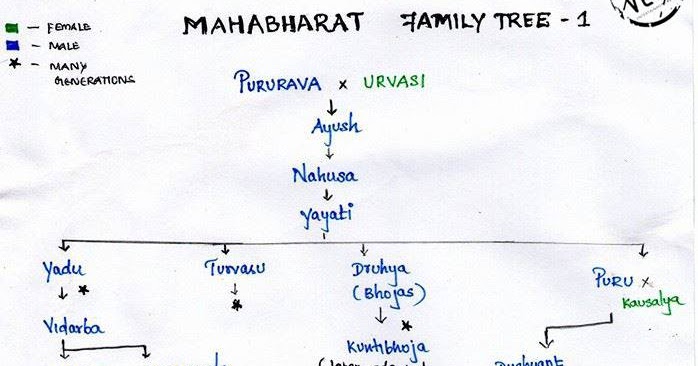 MAHABHARAT FAMILY TREE - 1
- FEMALE
- MALE
* - MANY
GENERATIONS
PURURAVA x URVASI
Ayush
Nahusa
Yayati
Yadu
Turvasu
Druhya
(Bhojas)
PURU x
Kausalya
*
*
*
Vidarba
Kuntibhoja